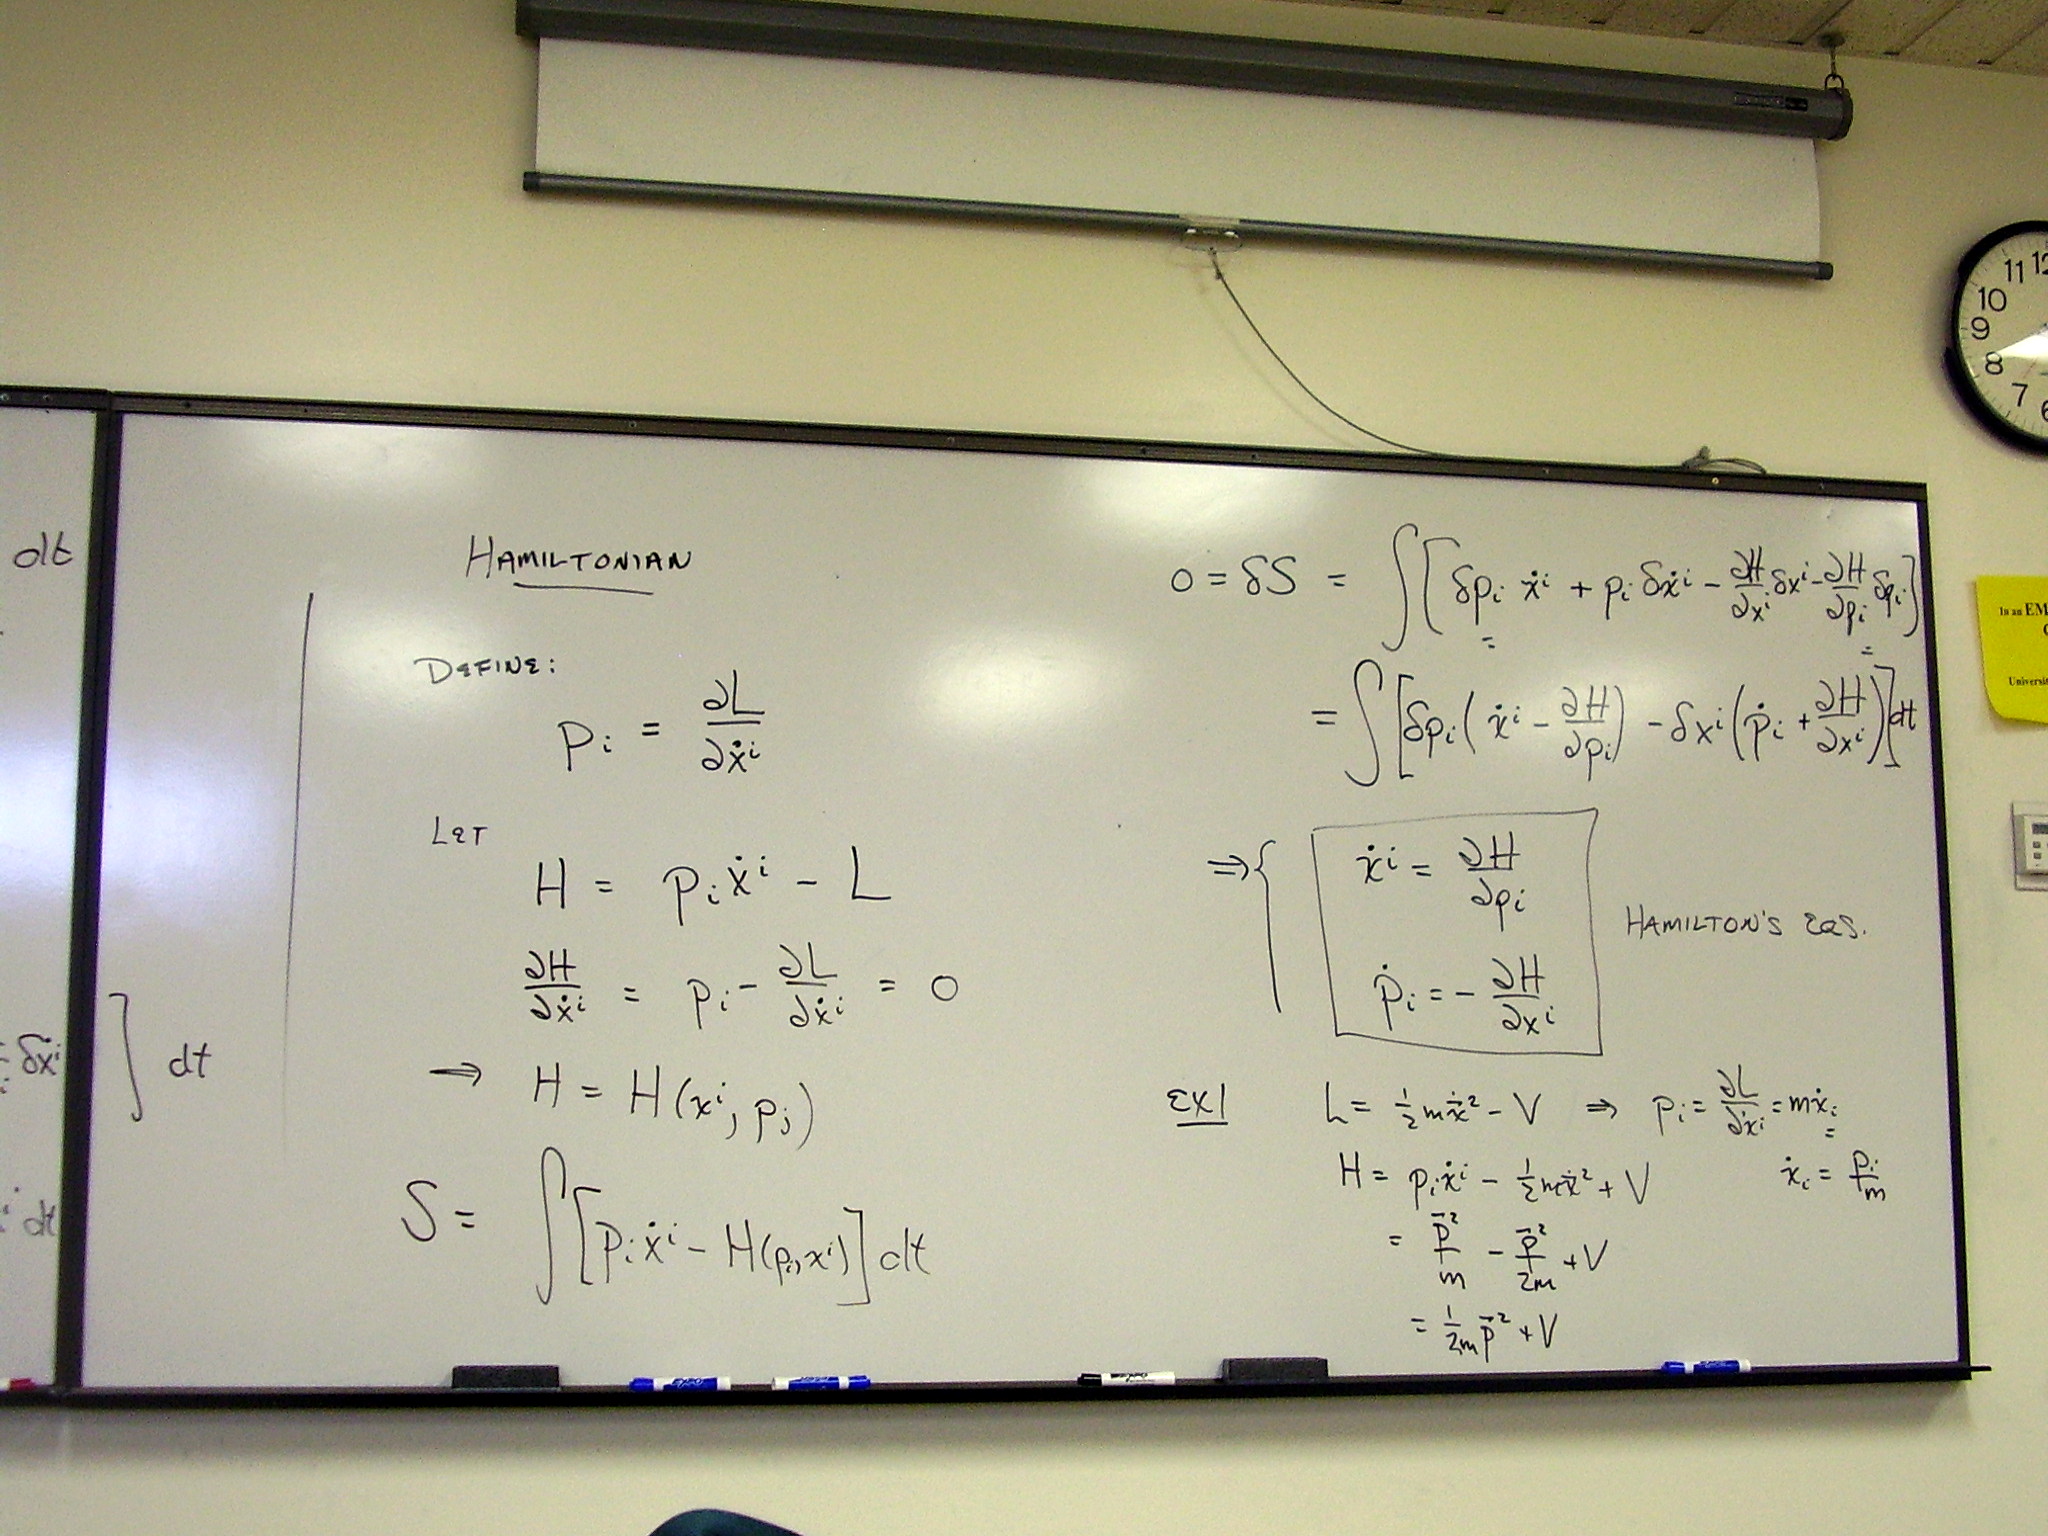 dt
δẋⁱ ] dt
dt
HAMILTONIAN
DEFINE:
pᵢ = ∂L/∂ẋⁱ
LET
H = pᵢẋⁱ - L
∂H/∂ẋⁱ = pᵢ - ∂L/∂ẋⁱ = 0
⇒ H = H(xⁱ, pⱼ)
S = ∫[pᵢẋⁱ - H(pᵢ, xⁱ)] dt
0 = δS = ∫[δpᵢ ẋⁱ + pᵢ δẋⁱ - ∂H/∂xⁱ δxⁱ - ∂H/∂pᵢ δpᵢ]
= ∫[δpᵢ(ẋⁱ - ∂H/∂pᵢ) - δxⁱ(ṗᵢ + ∂H/∂xⁱ)]dt
⇒ { ẋⁱ = ∂H/∂pᵢ
ṗᵢ = - ∂H/∂xⁱ
HAMILTON'S EQS.
EX1 L = ½mẋ⃗² - V ⇒ pᵢ = ∂L/∂ẋⁱ = mẋᵢ
H = pᵢẋⁱ - ½mẋ⃗² + V ẋᵢ = pᵢ/m
= p⃗²/m - p⃗²/2m + V
= 1/2m p⃗² + V
11 12
10
9
8
7
6
In an EM
Universi
EXPO